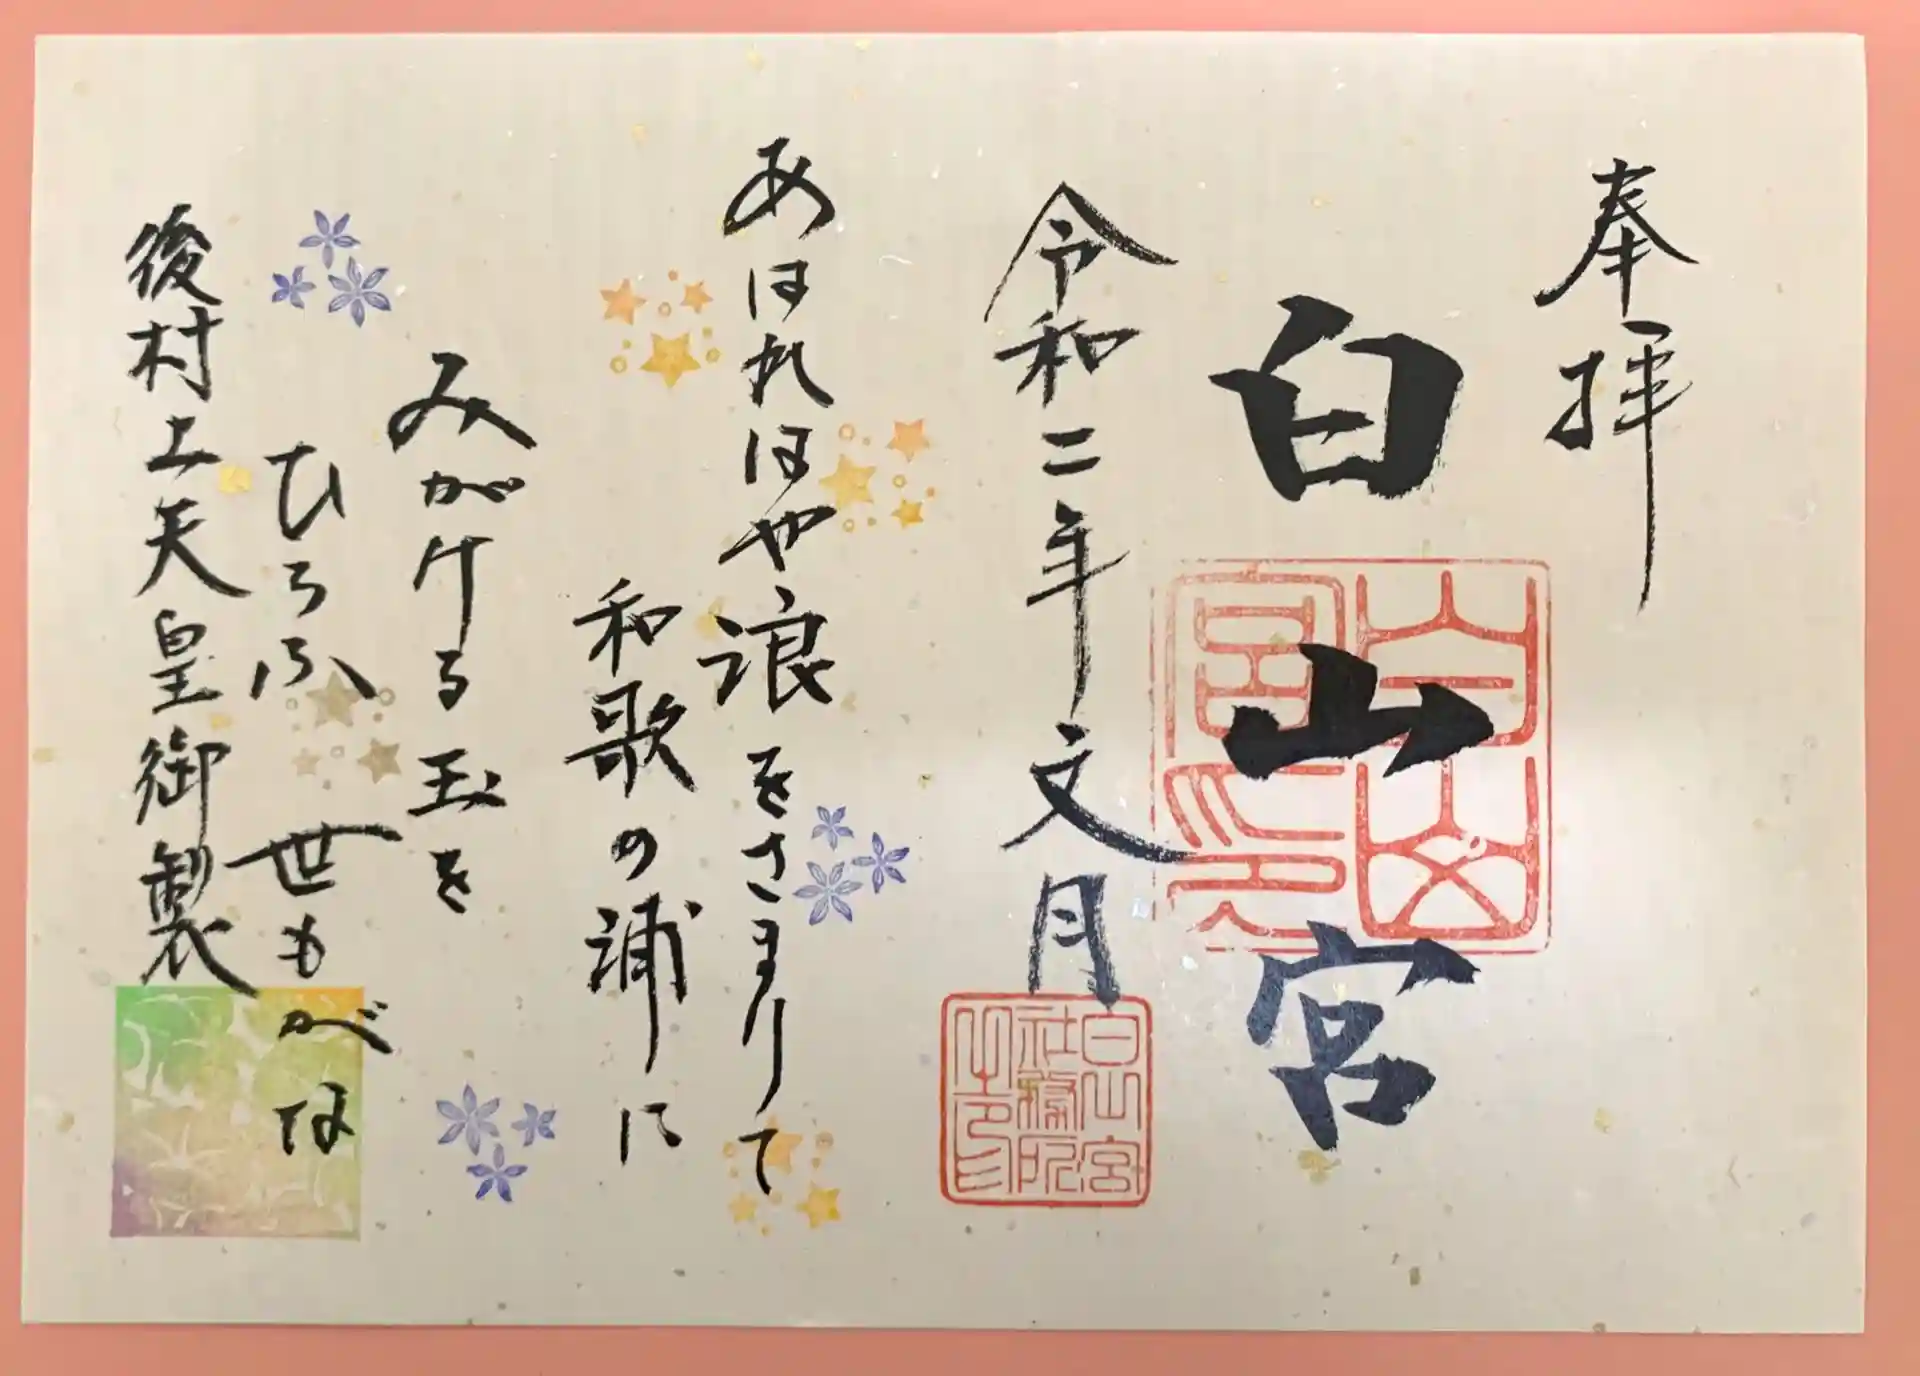 奉拝
白山宮
白山宮印
令和二年文月
白山宮
社務所
之印
あはれはや浪をさまりて
和歌の浦に
みがける玉を
ひろふ世もがな
後村上天皇御製